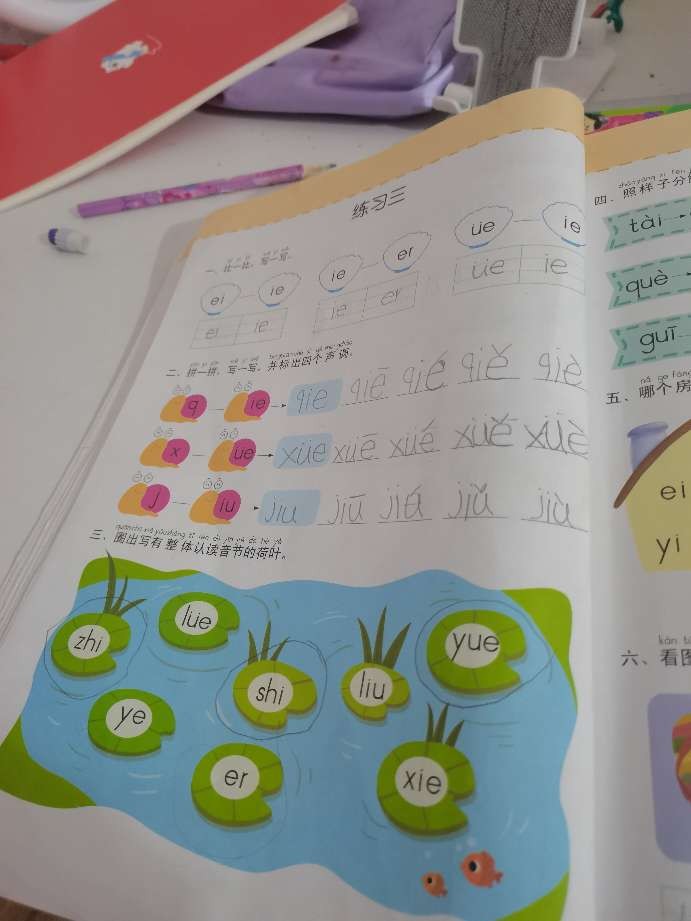 练习三
一、比一比，写一写。
ei ie ie er üe ie
ei ie ie er üe ie
二、拼一拼，写一写，并标出四个声调。
q ie qie qiē qié qiě qiè
x üe xüe xüē xüé xüě xüè
j iu jiu jiū jiú jiǔ jiù
三、圈出写有整体认读音节的荷叶。
zhi lüe shi liu yue
ye er xie
四、照样子分
tài
què
guī
五、哪个房
ei
yi
kàn
六、看图